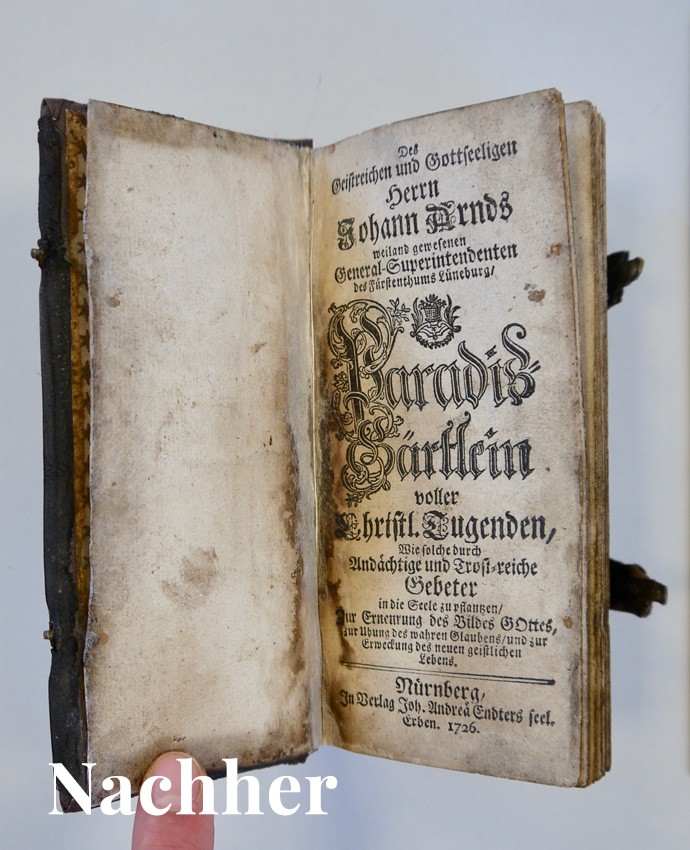 Des
Geistreichen und Gottseeligen
Herrn
Johann Arnds
weiland gewesenen
General-Superintendenten
des Fürstenthums Lüneburg/
Paradiß-
Gärtlein
voller
Christl. Tugenden,
Wie solche durch
Andächtige und Trost-reiche
Gebeter
in die Seele zu pflantzen/
Zur Erneurung des Bildes GOttes,
zur Ubung des wahren Glaubens/ und zur
Erweckung des neuen geistlichen
Lebens.
Nürnberg,
In Verlag Joh. Andreä Endters seel.
Erben. 1726.
Nachher